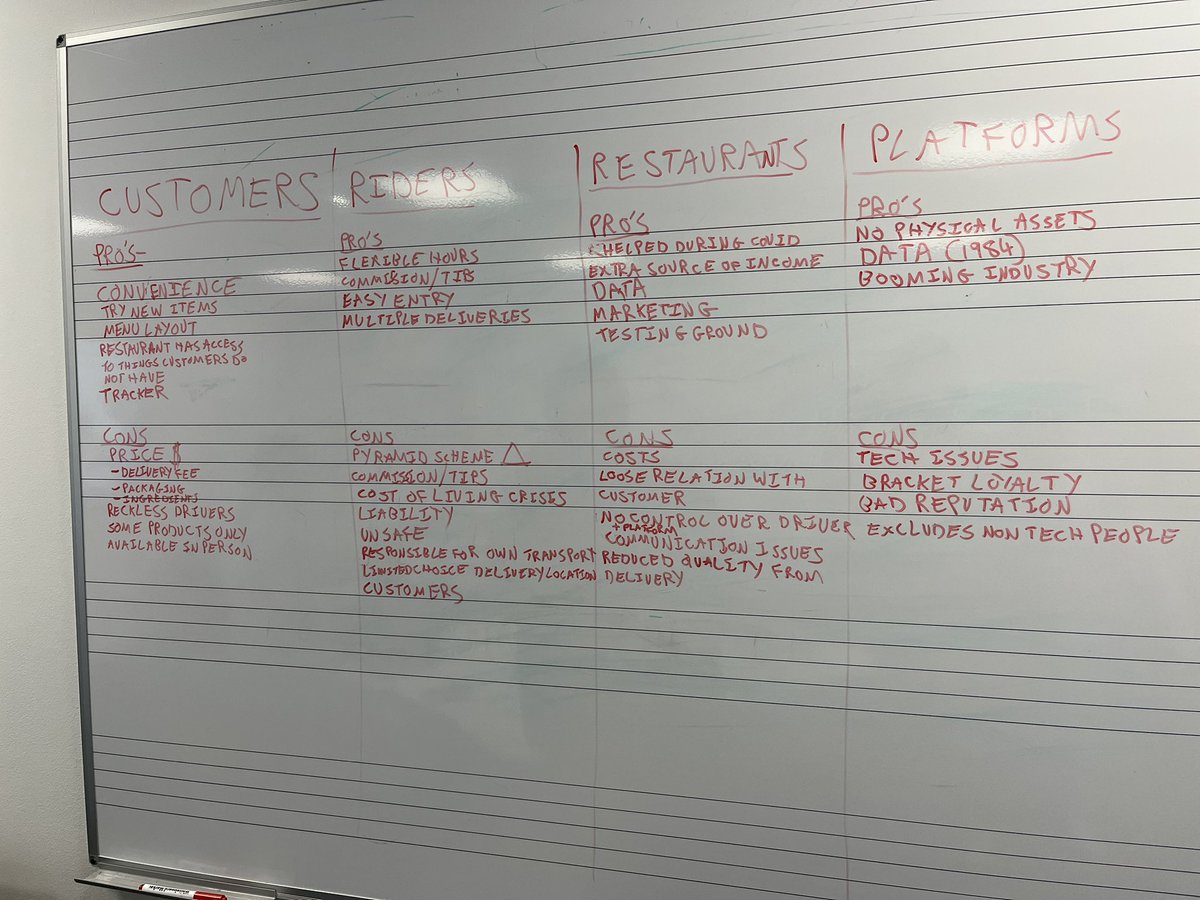 CUSTOMERS
PRO'S
CONVENIENCE
TRY NEW ITEMS
MENU LAYOUT
RESTAURANT HAS ACCESS
TO THINGS CUSTOMERS DO
NOT HAVE
TRACKER
CONS
PRICE $
- DELIVERY FEE
- PACKAGING
- INGREDIENTS
RECKLESS DRIVERS
SOME PRODUCTS ONLY
AVAILABLE IN PERSON
RIDERS
PRO'S
FLEXIBLE HOURS
COMMISSION/TIPS
EASY ENTRY
MULTIPLE DELIVERIES
CONS
PYRAMID SCHEME
COMMISSION/TIPS
COST OF LIVING CRISIS
LIABILITY
UNSAFE
RESPONSIBLE FOR OWN TRANSPORT
LIMITED CHOICE DELIVERY LOCATION
CUSTOMERS
RESTAURANTS
PRO'S
HELPED DURING COVID
EXTRA SOURCE OF INCOME
DATA
MARKETING
TESTING GROUND
CONS
COSTS
LOOSE RELATION WITH
CUSTOMER
NO CONTROL OVER DRIVER
+ PLATFORM
COMMUNICATION ISSUES
REDUCED QUALITY FROM
DELIVERY
PLATFORMS
PRO'S
NO PHYSICAL ASSETS
DATA (1984)
BOOMING INDUSTRY
CONS
TECH ISSUES
BRACKET LOYALTY
BAD REPUTATION
EXCLUDES NON TECH PEOPLE
Whiteboard Marker